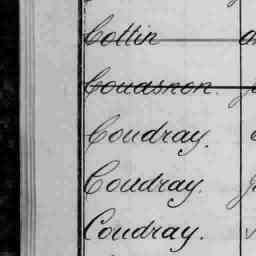 Cottin
Couasnon.
Coudray.
Coudray.
Coudray.